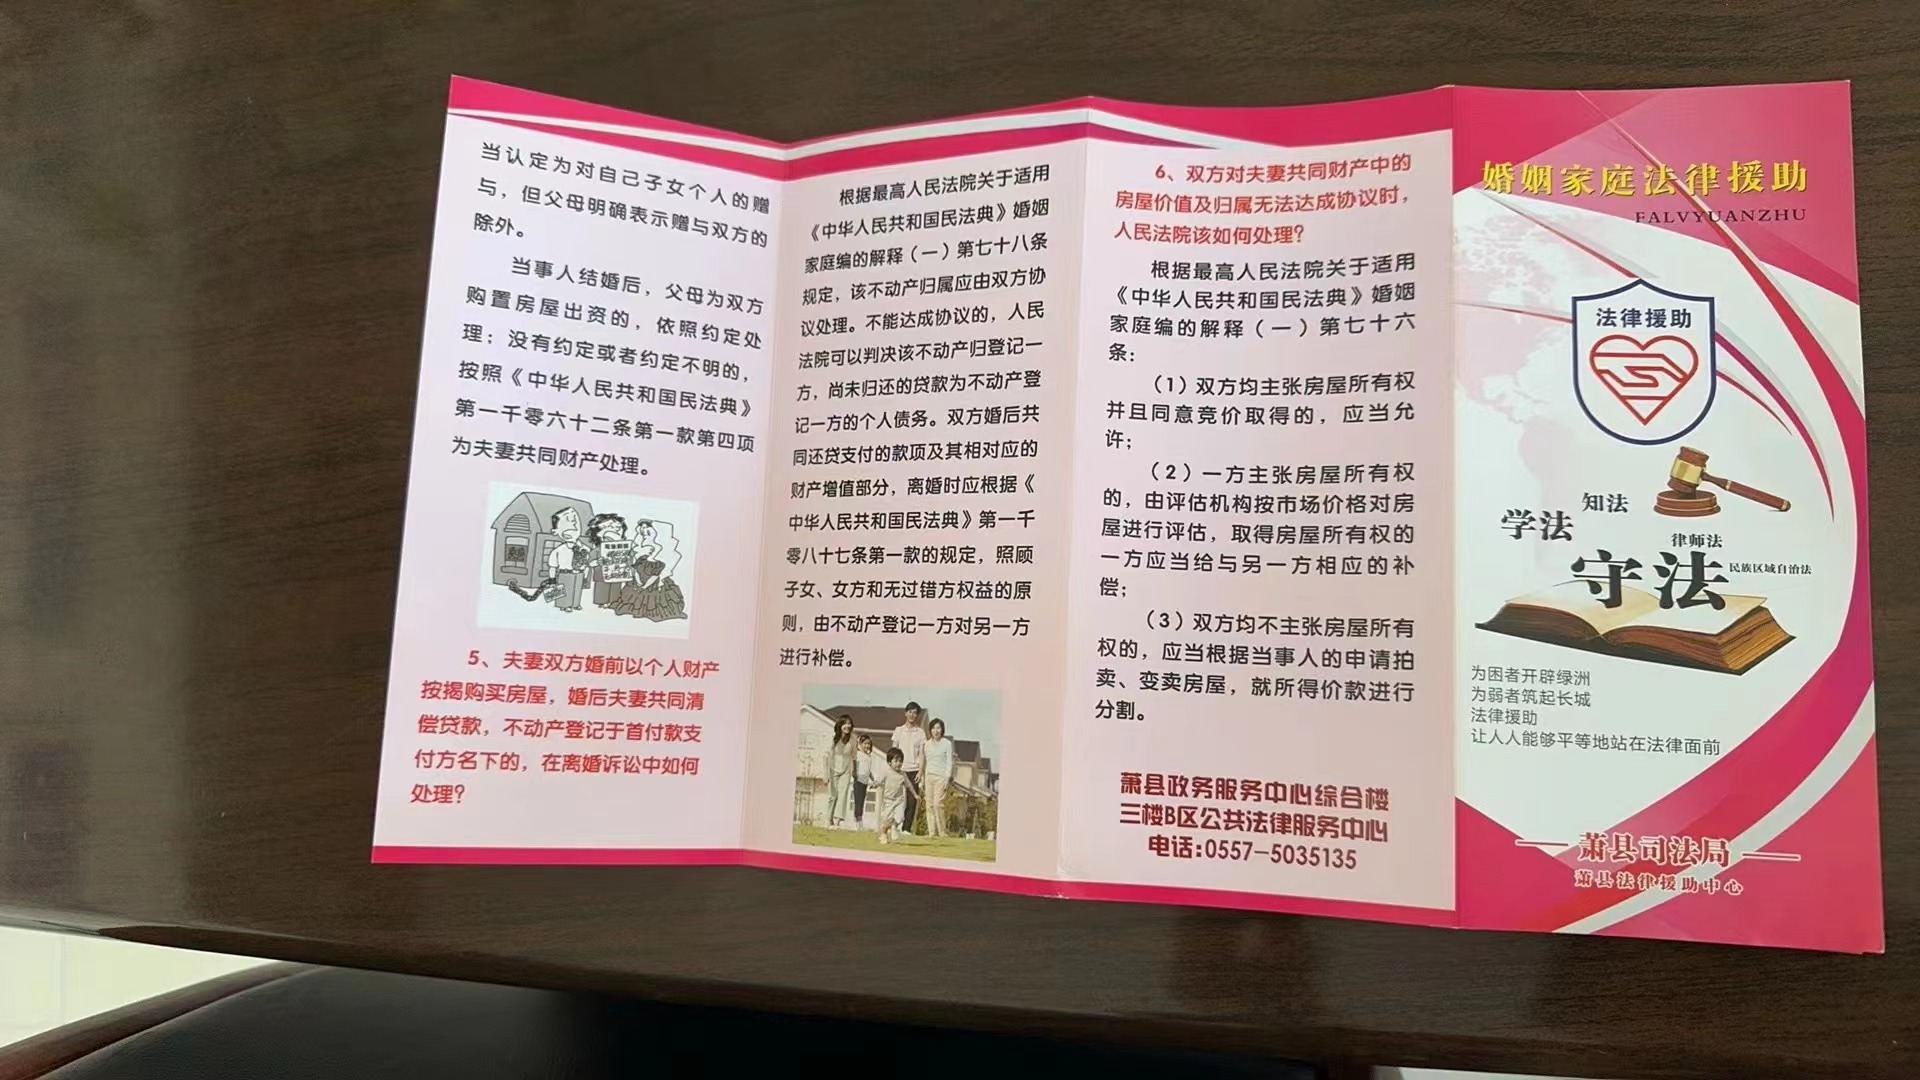 当认定为对自己子女个人的赠
与，但父母明确表示赠与双方的
除外。
当事人结婚后，父母为双方
购置房屋出资的，依照约定处
理；没有约定或者约定不明的，
按照《中华人民共和国民法典》
第一千零六十二条第一款第四项
为夫妻共同财产处理。
5、夫妻双方婚前以个人财产
按揭购买房屋，婚后夫妻共同清
偿贷款，不动产登记于首付款支
付方名下的，在离婚诉讼中如何
处理？
根据最高人民法院关于适用
《中华人民共和国民法典》婚姻
家庭编的解释（一）第七十八条
规定，该不动产归属应由双方协
议处理。不能达成协议的，人民
法院可以判决该不动产归登记一
方，尚未归还的贷款为不动产登
记一方的个人债务。双方婚后共
同还贷支付的款项及其相对应的
财产增值部分，离婚时应根据《
中华人民共和国民法典》第一千
零八十七条第一款的规定，照顾
子女、女方和无过错方权益的原
则，由不动产登记一方对另一方
进行补偿。
6、双方对夫妻共同财产中的
房屋价值及归属无法达成协议时，
人民法院该如何处理？
根据最高人民法院关于适用
《中华人民共和国民法典》婚姻
家庭编的解释（一）第七十六
条：
（1）双方均主张房屋所有权
并且同意竞价取得的，应当允
许；
（2）一方主张房屋所有权
的，由评估机构按市场价格对房
屋进行评估，取得房屋所有权的
一方应当给与另一方相应的补
偿；
（3）双方均不主张房屋所有
权的，应当根据当事人的申请拍
卖、变卖房屋，就所得价款进行
分割。
萧县政务服务中心综合楼
三楼B区公共法律服务中心
电话：0557-5035135
婚姻家庭法律援助
FALVYUANZHU
法律援助
学法
知法
律师法
守法
民族区域自治法
为困者开辟绿洲
为弱者筑起长城
法律援助
让人人能够平等地站在法律面前
萧县司法局
萧县法律援助中心